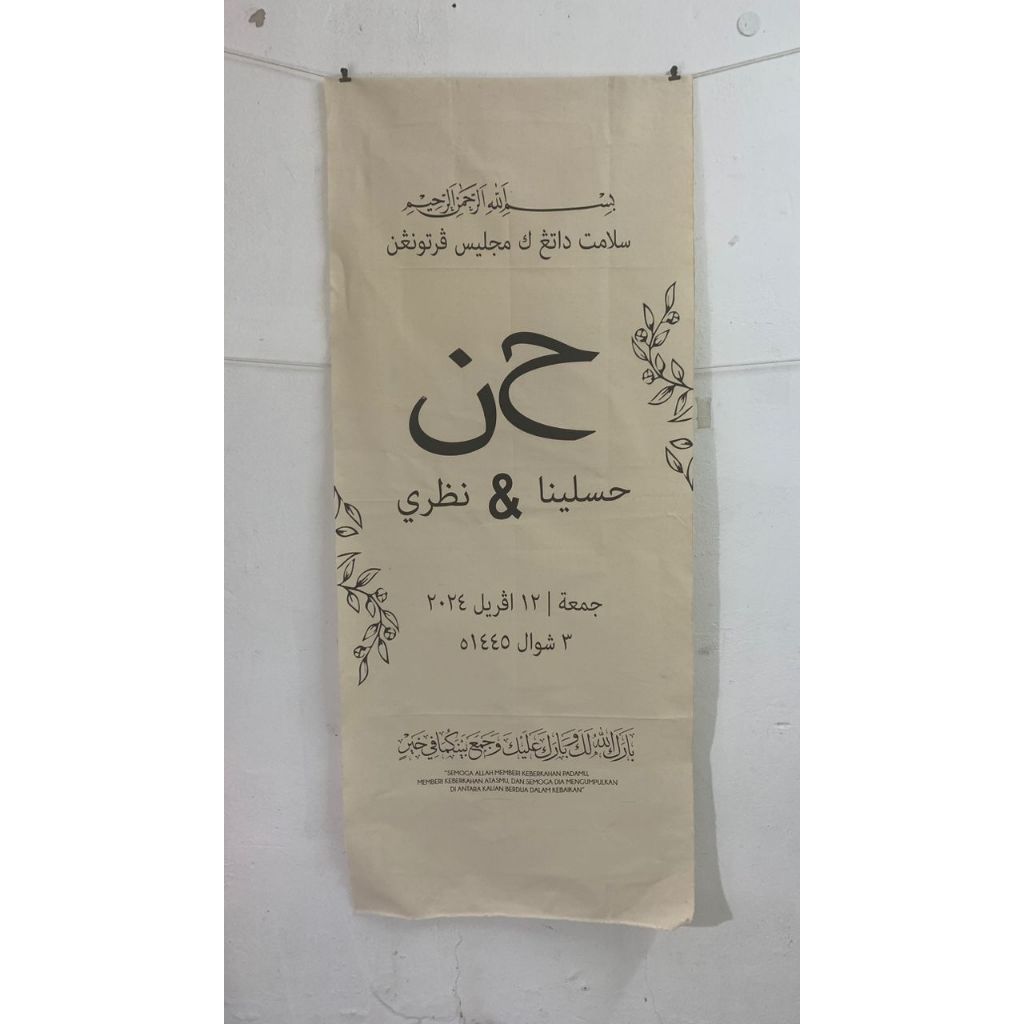 بِسْمِ اللهِ الرَّحْمٰنِ الرَّحِيْمِ
سلامت داتڠ ك مجليس ڤرتونڠن
ح ن
حسلينا & نظري
جمعة | ١٢ اڤريل ٢٠٢٤
٣ شوال ١٤٤٥ه
بَارَكَ اللهُ لَكَ وَبَارَكَ عَلَيْكَ وَجَمَعَ بَيْنَكُمَا فِي خَيْرٍ
"SEMOGA ALLAH MEMBERI KEBERKAHAN PADAMU,
MEMBERI KEBERKAHAN ATASMU, DAN SEMOGA DIA MENGUMPULKAN
DI ANTARA KALIAN BERDUA DALAM KEBAIKAN"